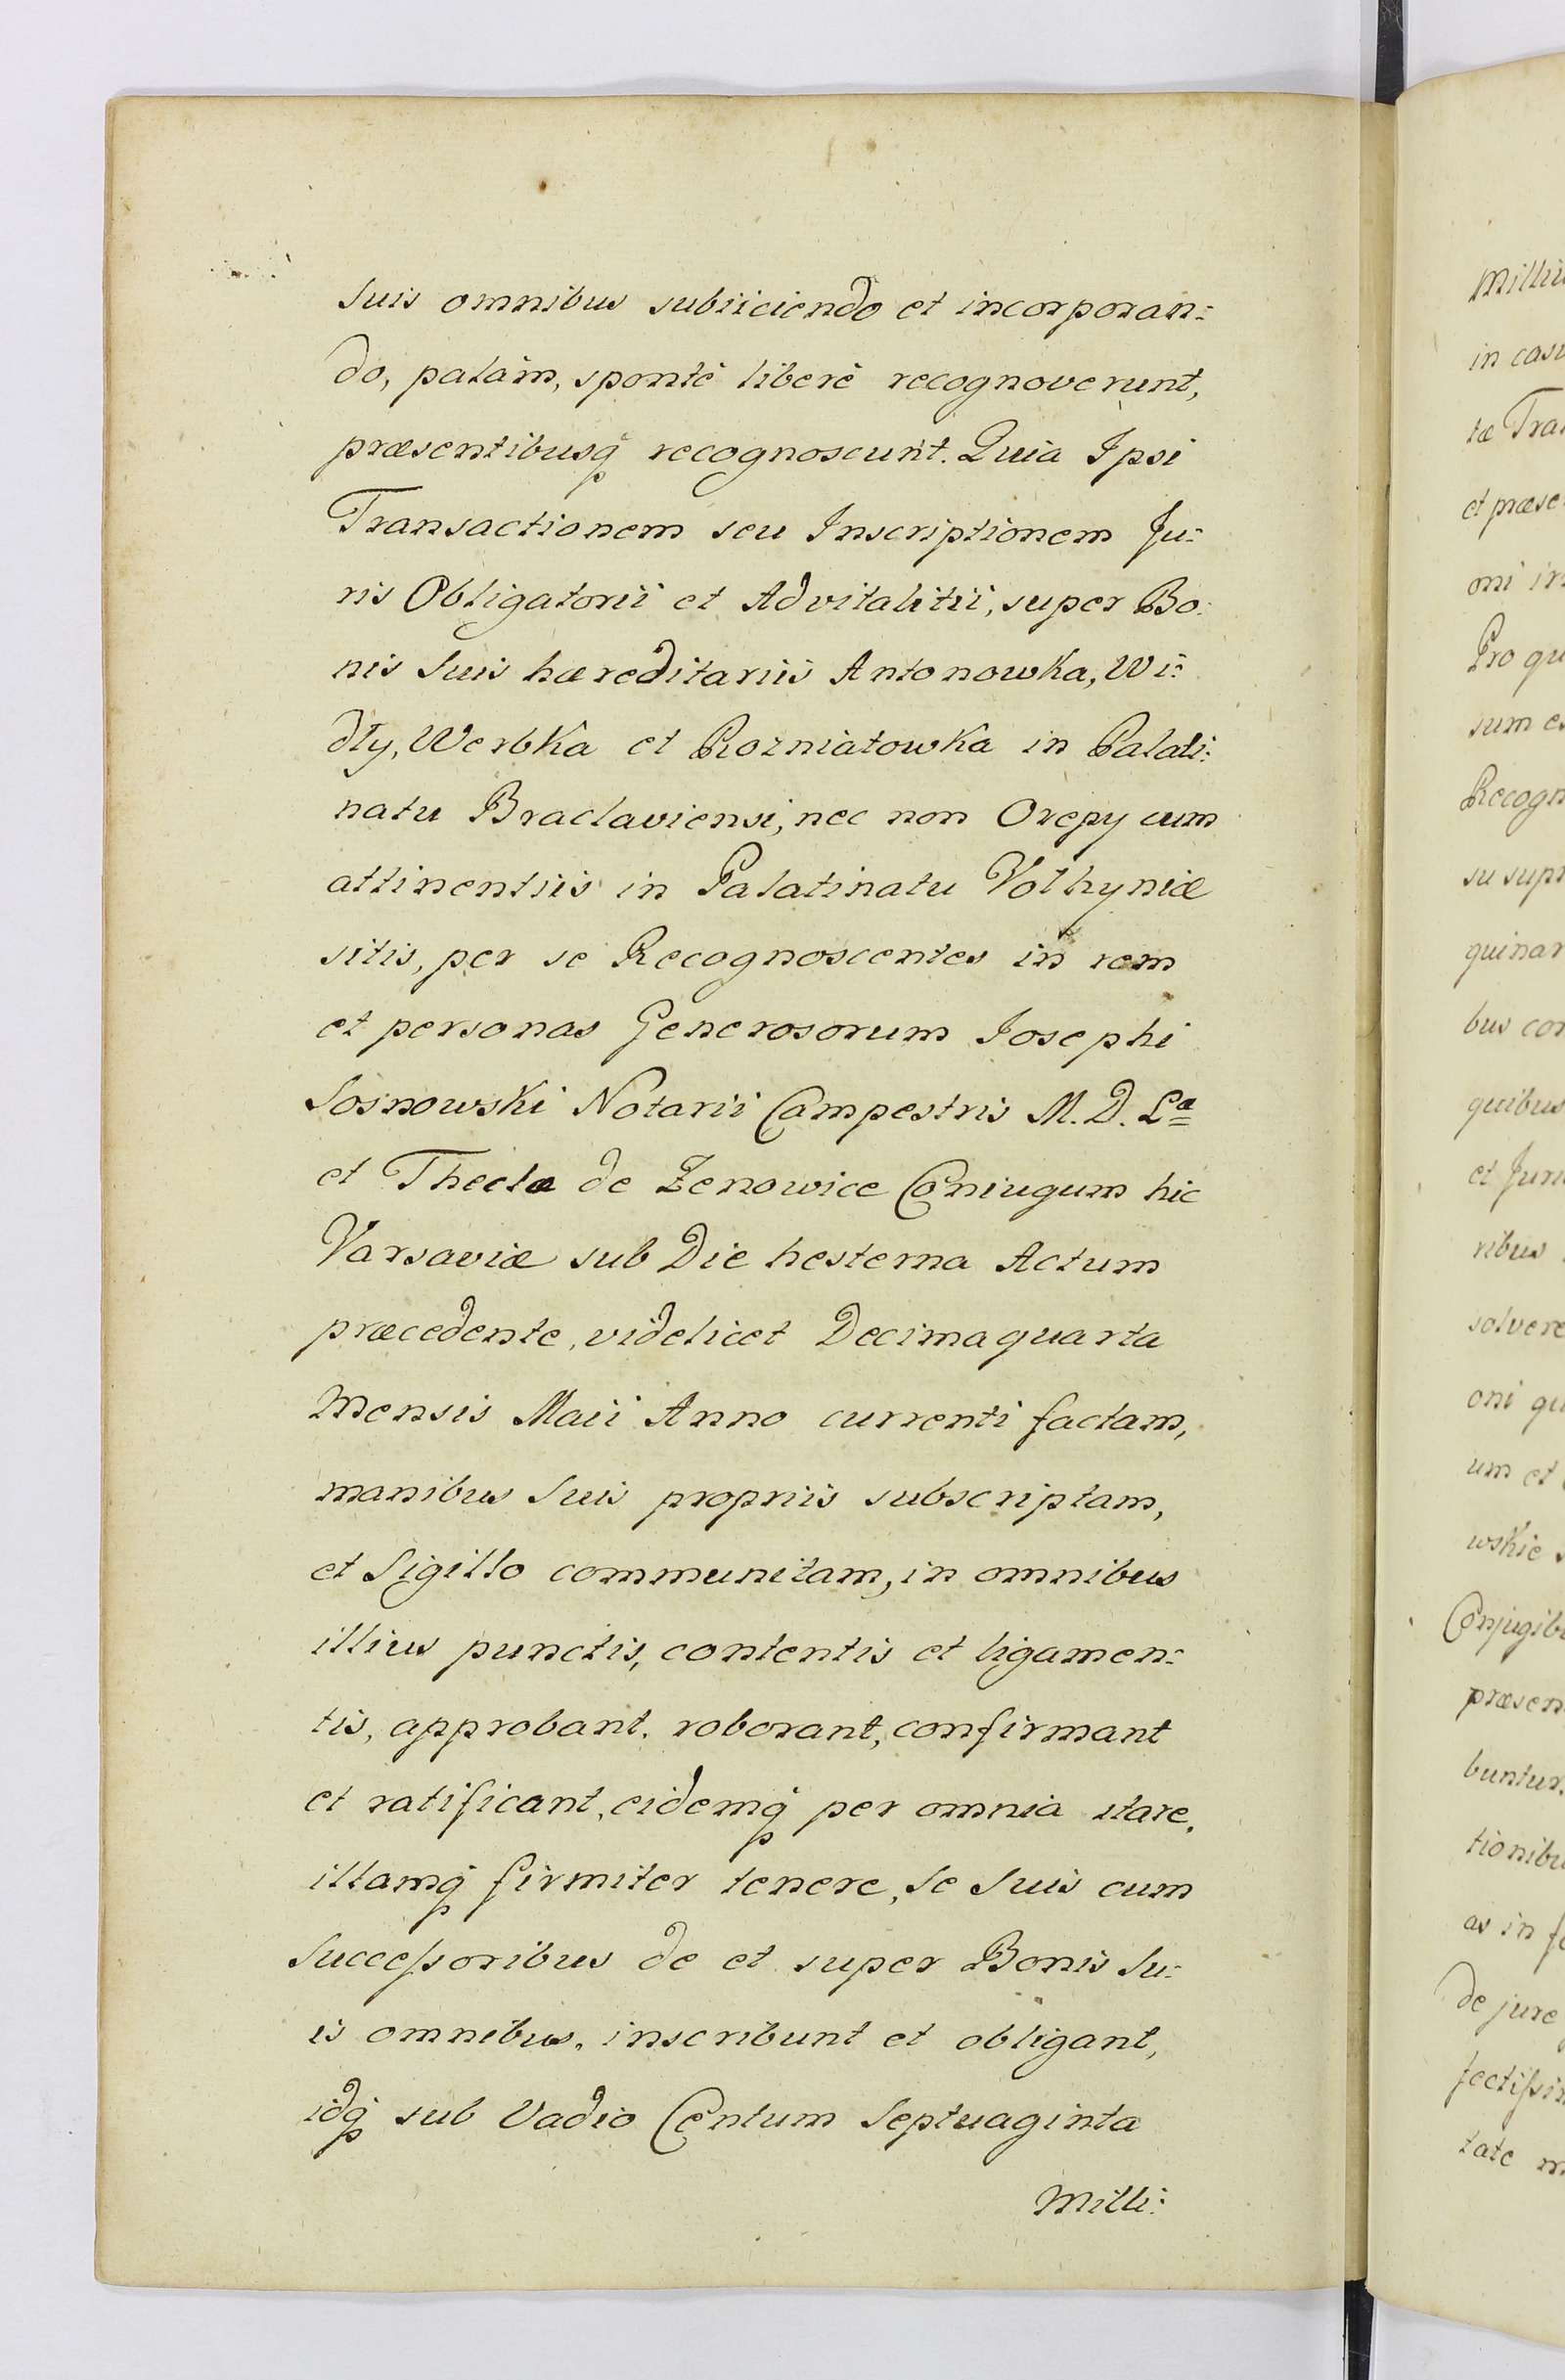 Suis omnibus subiiciendo et incorporan:
do, palàm, spontè liberè recognoverunt,
præsentibusq́ recognoscunt. Quia Ipsi
Transactionem seu Inscriptionem Ju:
ris Obligatorii et Advitalitii, super Bo:
nis Suis hæreditariis Antonowka, Wi:
dły, Werbka et Rozniatowka in Palati:
natu Braclaviensi, nec non Orepy cum
attinentiis in Palatinatu Volhyniæ
sitis, per se Recognoscentes in rem
et personas Generosorum Josephi
Sosnowski Notarii Campestris M. D. Læ
et Theclæ de Zenowice Coniugum hic
Varsaviæ sub Die hesterna Actum
præcedente, videlicet Decima quarta
Mensis Maii Anno currenti factam,
manibus Suis propriis subscriptam,
et Sigillo communitam, in omnibus
illius punctis, contentis et ligamen:
tis, approbant, roborant, confirmant
et ratificant, eidemq́ per omnia stare,
illamq́ firmiter tenere, Se Suis cum
Successoribus de et super Bonis Su:
is omnibus, inscribunt et obligant,
idq́ sub Vadio Centum Septuaginta
Milli:
in
Tra
et præse
oni
Pro qu
sum
Recogn
su
quinar
bus
quibus
et
ribus
solvere
oni
um et
wskie
Conjugib
præsen
buntur
tionibu
as in
de jure
tate